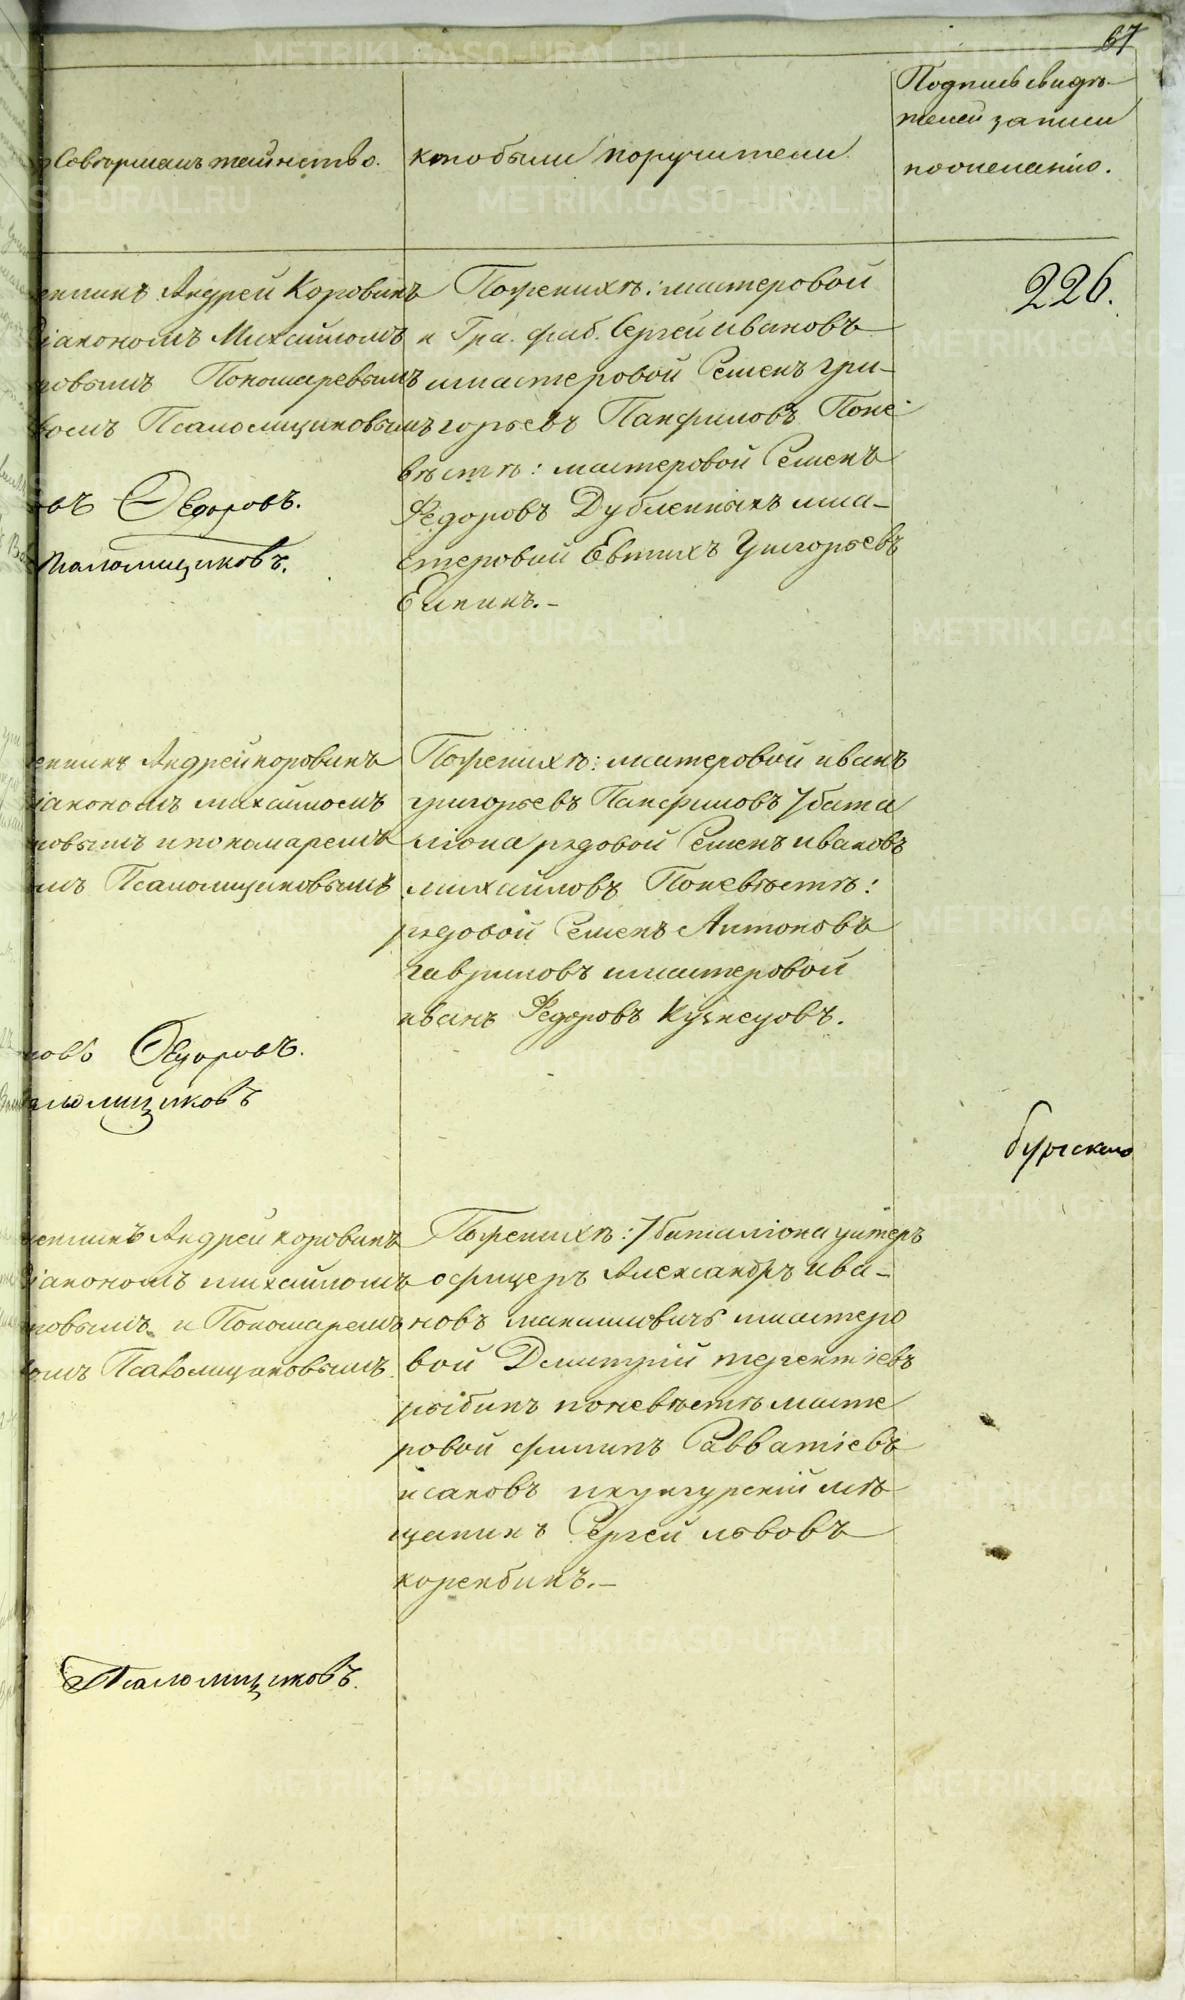 67
Совершалъ таинство.
кто были поручители
Подпись свидѣ-
телей записи
по желанію.
226.
Андрей Коровинъ
іакономъ Михаиломъ
новымъ Пономаревымъ
Псаломщиковымъ
Ѳедоровъ.
Псаломщиковъ.
По женихѣ: мастеровой
и Гра. фаб. Сергей Ивановъ
и мастеровой Семенъ Гри-
горьевъ Панфиловъ По не
вѣстѣ: мастеровой Семенъ
Ѳедоровъ Дубленныхъ и ма-
стеровой Евтихъ Григорьевъ
Елкинъ.-
Андрей Коровинъ
іакономъ михаиломъ
новымъ и пономаремъ
Псаломщиковымъ
новъ Ѳедоровъ.
аломщиковъ
По женихѣ: мастеровой иванъ
григорьевъ Панфиловъ 7 бата
ліона рядовой Семенъ ивановъ
михайловъ По невѣстѣ:
рядовой Семенъ Антоновъ
гавриловъ и мастеровой
иванъ Ѳедоровъ Кузнецовъ.
бургскаго
Андрей коровинъ
іакономъ михаиломъ
новымъ и Пономаремъ
Псаломщиковымъ.
Псаломщиковъ.
По женихѣ: 7 баталіона унтеръ
офицеръ Александръ ива-
новъ и мастеро
вой Дмитрій терентіевъ
рыбинъ по невѣстѣ масте
ровой филипъ Савватіевъ
исаковъ и кунгурскій мѣ
щанинъ Сергей львовъ